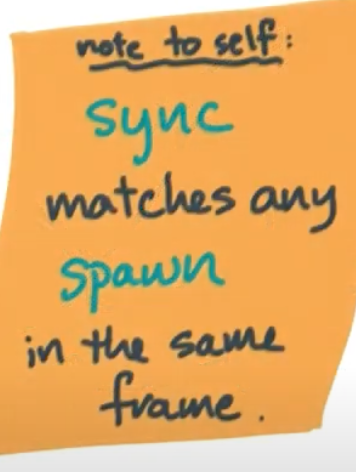 note to self:
sync
matches any
spawn
in the same
frame.